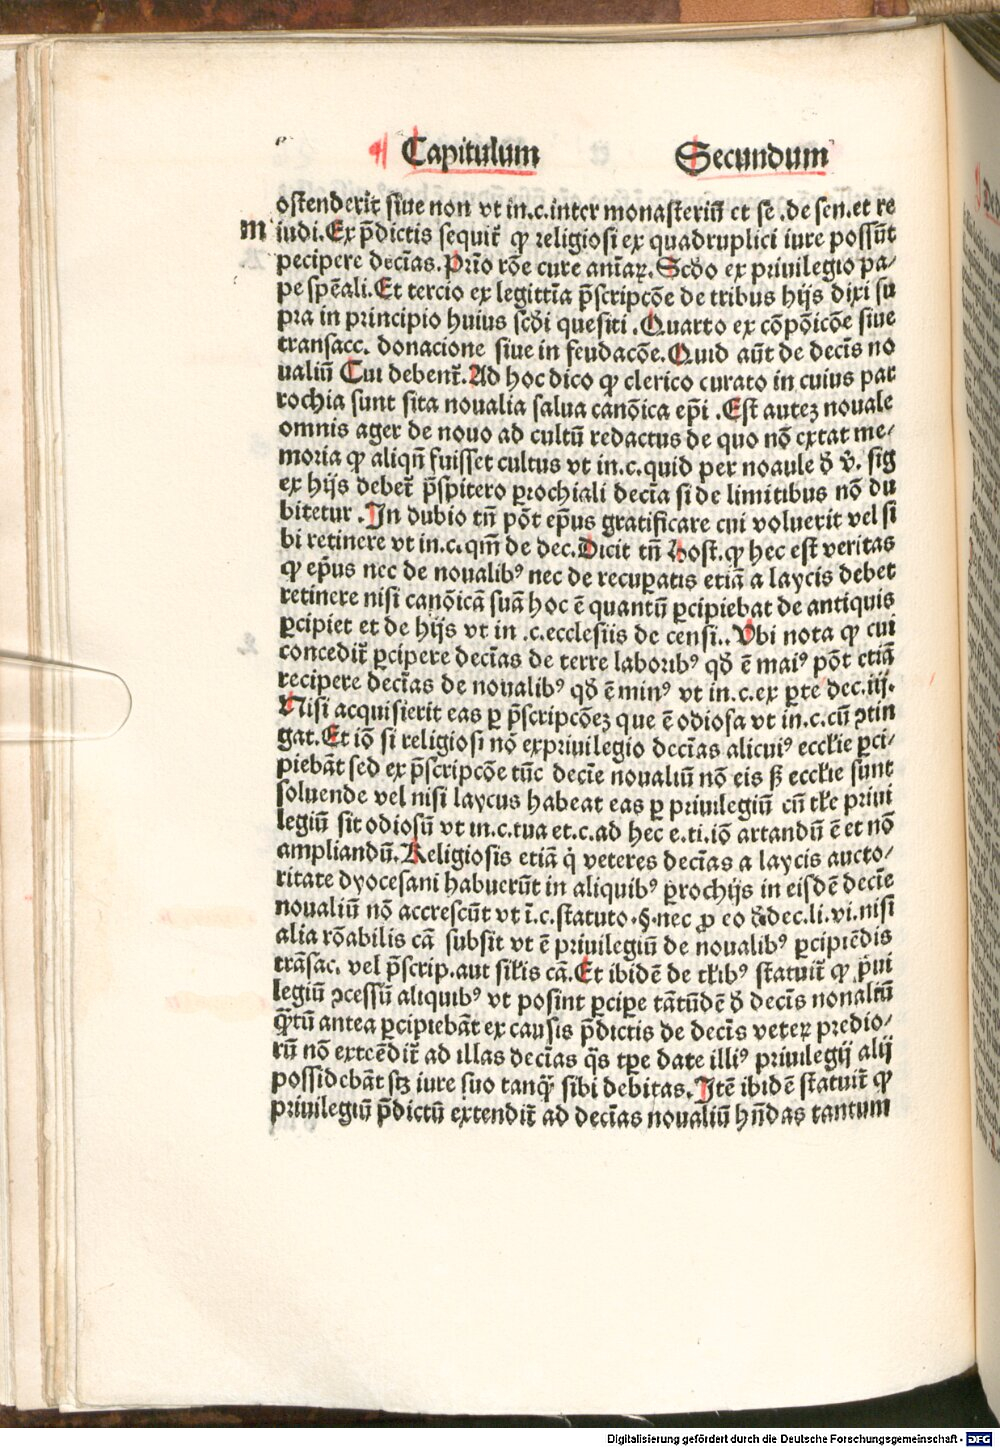 Capitulum Secundum
ostenderit̃ siue non vt in.c.inter monasteriũ et se .de sen.et re
m iudi.Ex p̃dictis sequit̃ ꝙ religiosi ex quadruplici iure possũt
pecipere decĩas.Prĩo rõe cure anĩaꝝ.Scđo ex priuilegio pa⸗
pe spẽali.Et tercio ex legittĩa p̃scripcõe de tribus hijs dixi su
pra in principio huius scđi quesiti .Quarto ex cõpõicõe siue
transacc. donacione siue in feudacõe.Quid aũt de decĩs no
ualiũ Cui debent̃.Ad hoc dico ꝙ clerico curato in cuius par
rochia sunt sita noualia salua canõica ep̃i .Est autez nouale
omnis ager de nouo ad cultũ redactus de quo nõ extat me⸗
moria ꝙ aliqñ fuisset cultus vt in.c.quid per noaule đ ṽ. sig
ex hijs debet̃ p̃spitero ꝑrochiali decĩa si de limitibus nõ du
bitetur .In dubio tñ põt ep̃us gratificare cui voluerit vel si
bi retinere vt in.c.qm̃ de dec.Dicit tñ host.ꝙ hec est veritas
ꝙ ep̃us nec de noualibꝰ nec de recuꝑatis etiã a laycis debet
retinere nisi canõicã suã hoc ẽ quantũ ꝑcipiebat de antiquis
ꝑcipiet et de hijs vt in .c.ecclesiis de censi..Vbi nota ꝙ cui
concedit̃ ꝑcipere decĩas de terre laboribꝰ qđ ẽ maiꝰ põt etiã
recipere decĩas de noualibꝰ qđ ẽ minꝰ vt in.c.ex ꝑte dec.iij.
Nisi acquisierit eas ꝑ p̃scripcõez que ẽ odiosa vt in.c.cũ ꝯtin
gat.Et iõ si religiosi nõ expriuilegio decĩas alicuiꝰ eccłie ꝑci⸗
piebãt sed ex p̃scripcõe tũc decĩe noualiũ nõ eis sꝫ eccłie sunt
soluende vel nisi laycus habeat eas ꝑ priuilegiũ cũ tłe priui
legiũ sit odiosũ vt in.c.tua et.c.ad hec e.ti.iõ artandũ ẽ et nõ
ampliandũ.Religiosis etiã q̇ veteres decĩas a laycis aucto⸗
ritate dyocesani habuerũt in aliquibꝰ ꝑrochijs in eisdẽ decĩe
noualiũ nõ accrescũt vt ĩ.c.statuto.§.nec ꝓ eo đ dec.li.vi.nisi
alia rõabilis cã subsit vt ẽ priuilegiũ de noualibꝰ ꝑcipiẽdis
trãsac. vel p̃scrip.aut siłis cã.Et ibidẽ de tłibꝰ statuit̃ ꝙ p̃ui
legiũ ꝯcessũ aliquibꝰ vt posint ꝑcipe tãtũdẽ đ decĩs nonaliũ
q̃tũ antea ꝑcipiebãt ex causis p̃dictis de decĩs veteꝝ predio⸗
rũ nõ extẽdit̃ ad illas decĩas q̃s tꝑe date illiꝰ priuilegij alij
possidebãt stꝫ iure suo tanq̃ sibi debitas.Itẽ ibidẽ statuit̃ ꝙ
priuilegiũ p̃dictũ extendit̃ ad decĩas noualiũ hñdas tantum
Digitalisierung gefördert durch die Deutsche Forschungsgemeinschaft - DFG